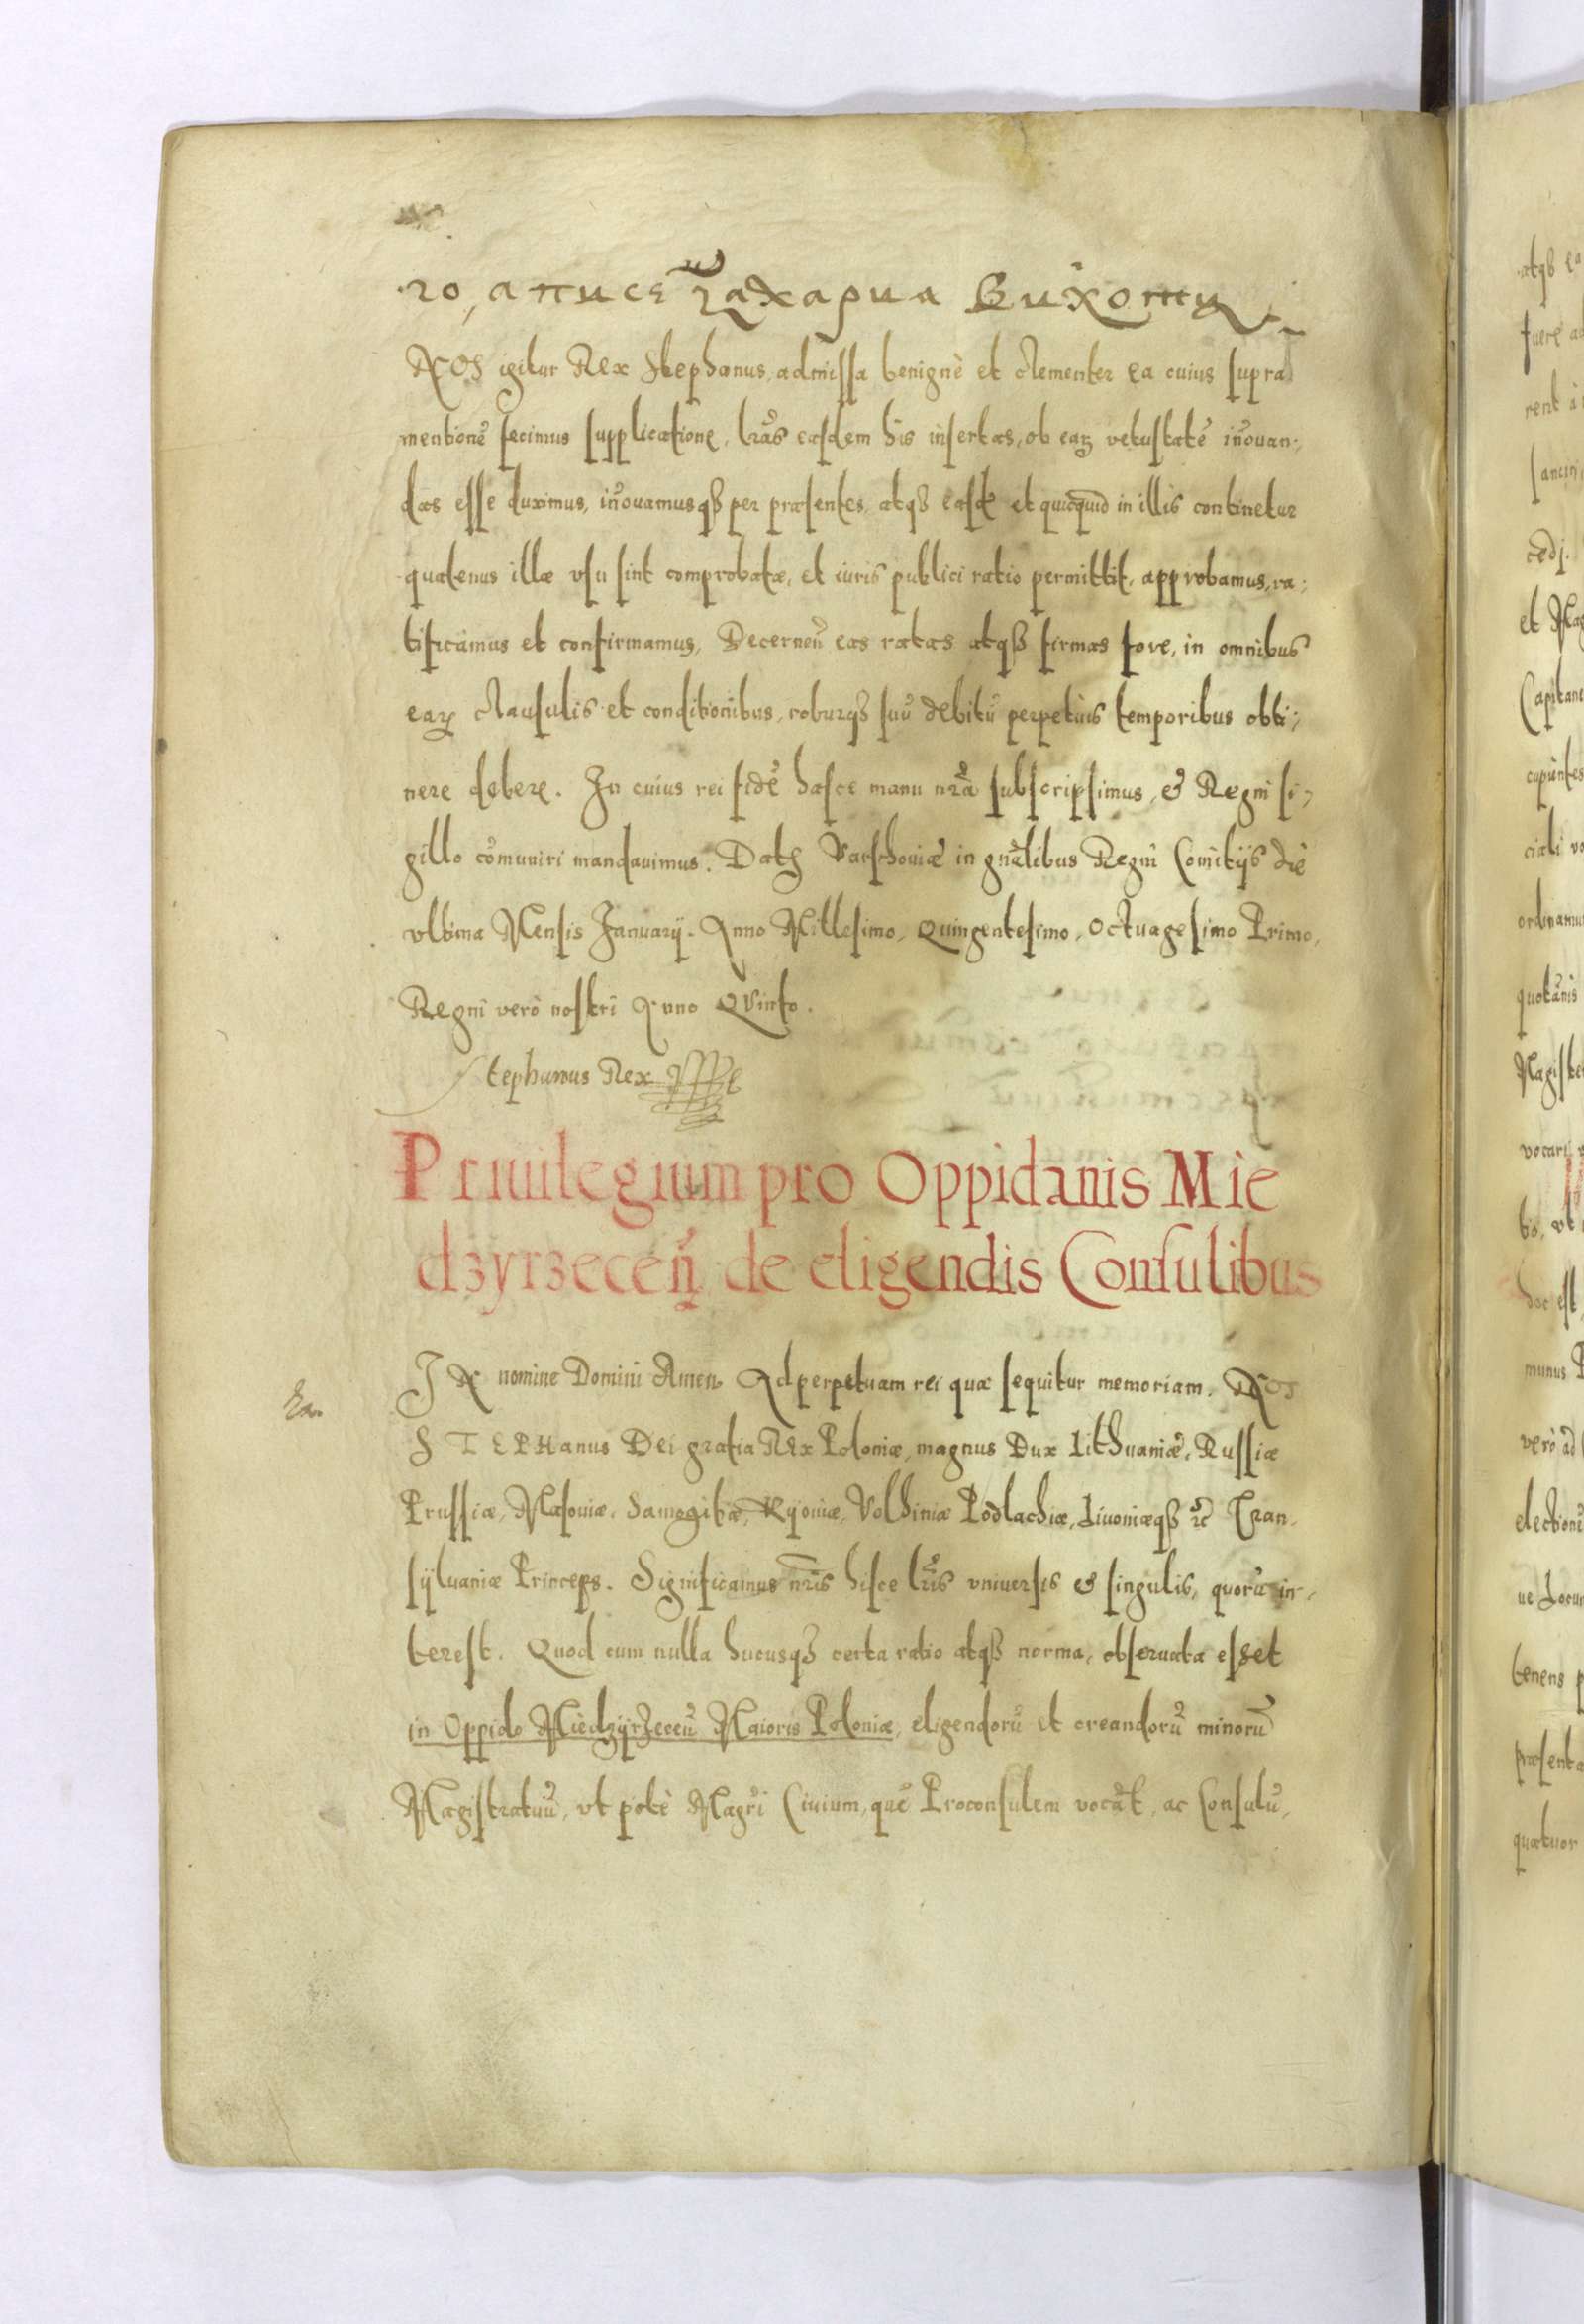 го, а писе захариа Вихоти
NOS igitur Rex Stephanus, admissa benignè et clementer ea cuius supra
mentionẽ fecimus supplicatione, lr̃as easdem his insertas, ob earꝫ vetustatẽ iñouan-
das esse duximus, iñouamusqꝫ per præsentes, atqꝫ easdẽ et quicquid in illis continetur
quatenus illæ vsu sint comprobatæ, et iuris publici ratio permittit, approbamus, ra-
tificamus et confirmamus, Decerneñ eas ratas atqꝫ firmas fore, in omnibus
earꝫ clausulis et conditionibus, roburqꝫ suũ debitũ perpetuis temporibus obti-
nere debere. In cuius rei fidẽ hasce manu nr̃a subscripsimus, & Regni si-
gillo cõmuniri mandauimus. Datꝫ Varschouiæ in gñalibus Regni Comitijs die
vltima Mensis Januarij. Anno Millesimo, Quingentesimo, Octuagesimo Primo,
Regni verò nostri Anno Quinto.
Stephanus Rex
Priuilegium pro Oppidanis Mie
dzyrzeceñ de eligendis Consulibus
IN nomine Domini Amen Ad perpetuam rei quæ sequitur memoriam. NOS
STEPHanus Dei gratia Rex Poloniæ, magnus Dux Lithuaniæ, Russiæ
Prussiæ, Masouiæ, Samogitiæ, Kyouiæ, Volhiniæ Podlachiæ, Liuoniæqꝫ ꝛc̃ Tran-
syluaniæ Princeps. Significamus nr̃is hisce lr̃is vniuersis & singulis, quorũ in-
terest. Quod cum nulla hucusqꝫ certa ratio atqꝫ norma, obseruata esset
in Oppido Miedzyrzeceñ Maioris Poloniæ, eligendorũ et creandorũ minorũ
Magistratuũ, vt potè Magr̃i Ciuium, quẽ Proconsulem vocãt, ac Consulũ,